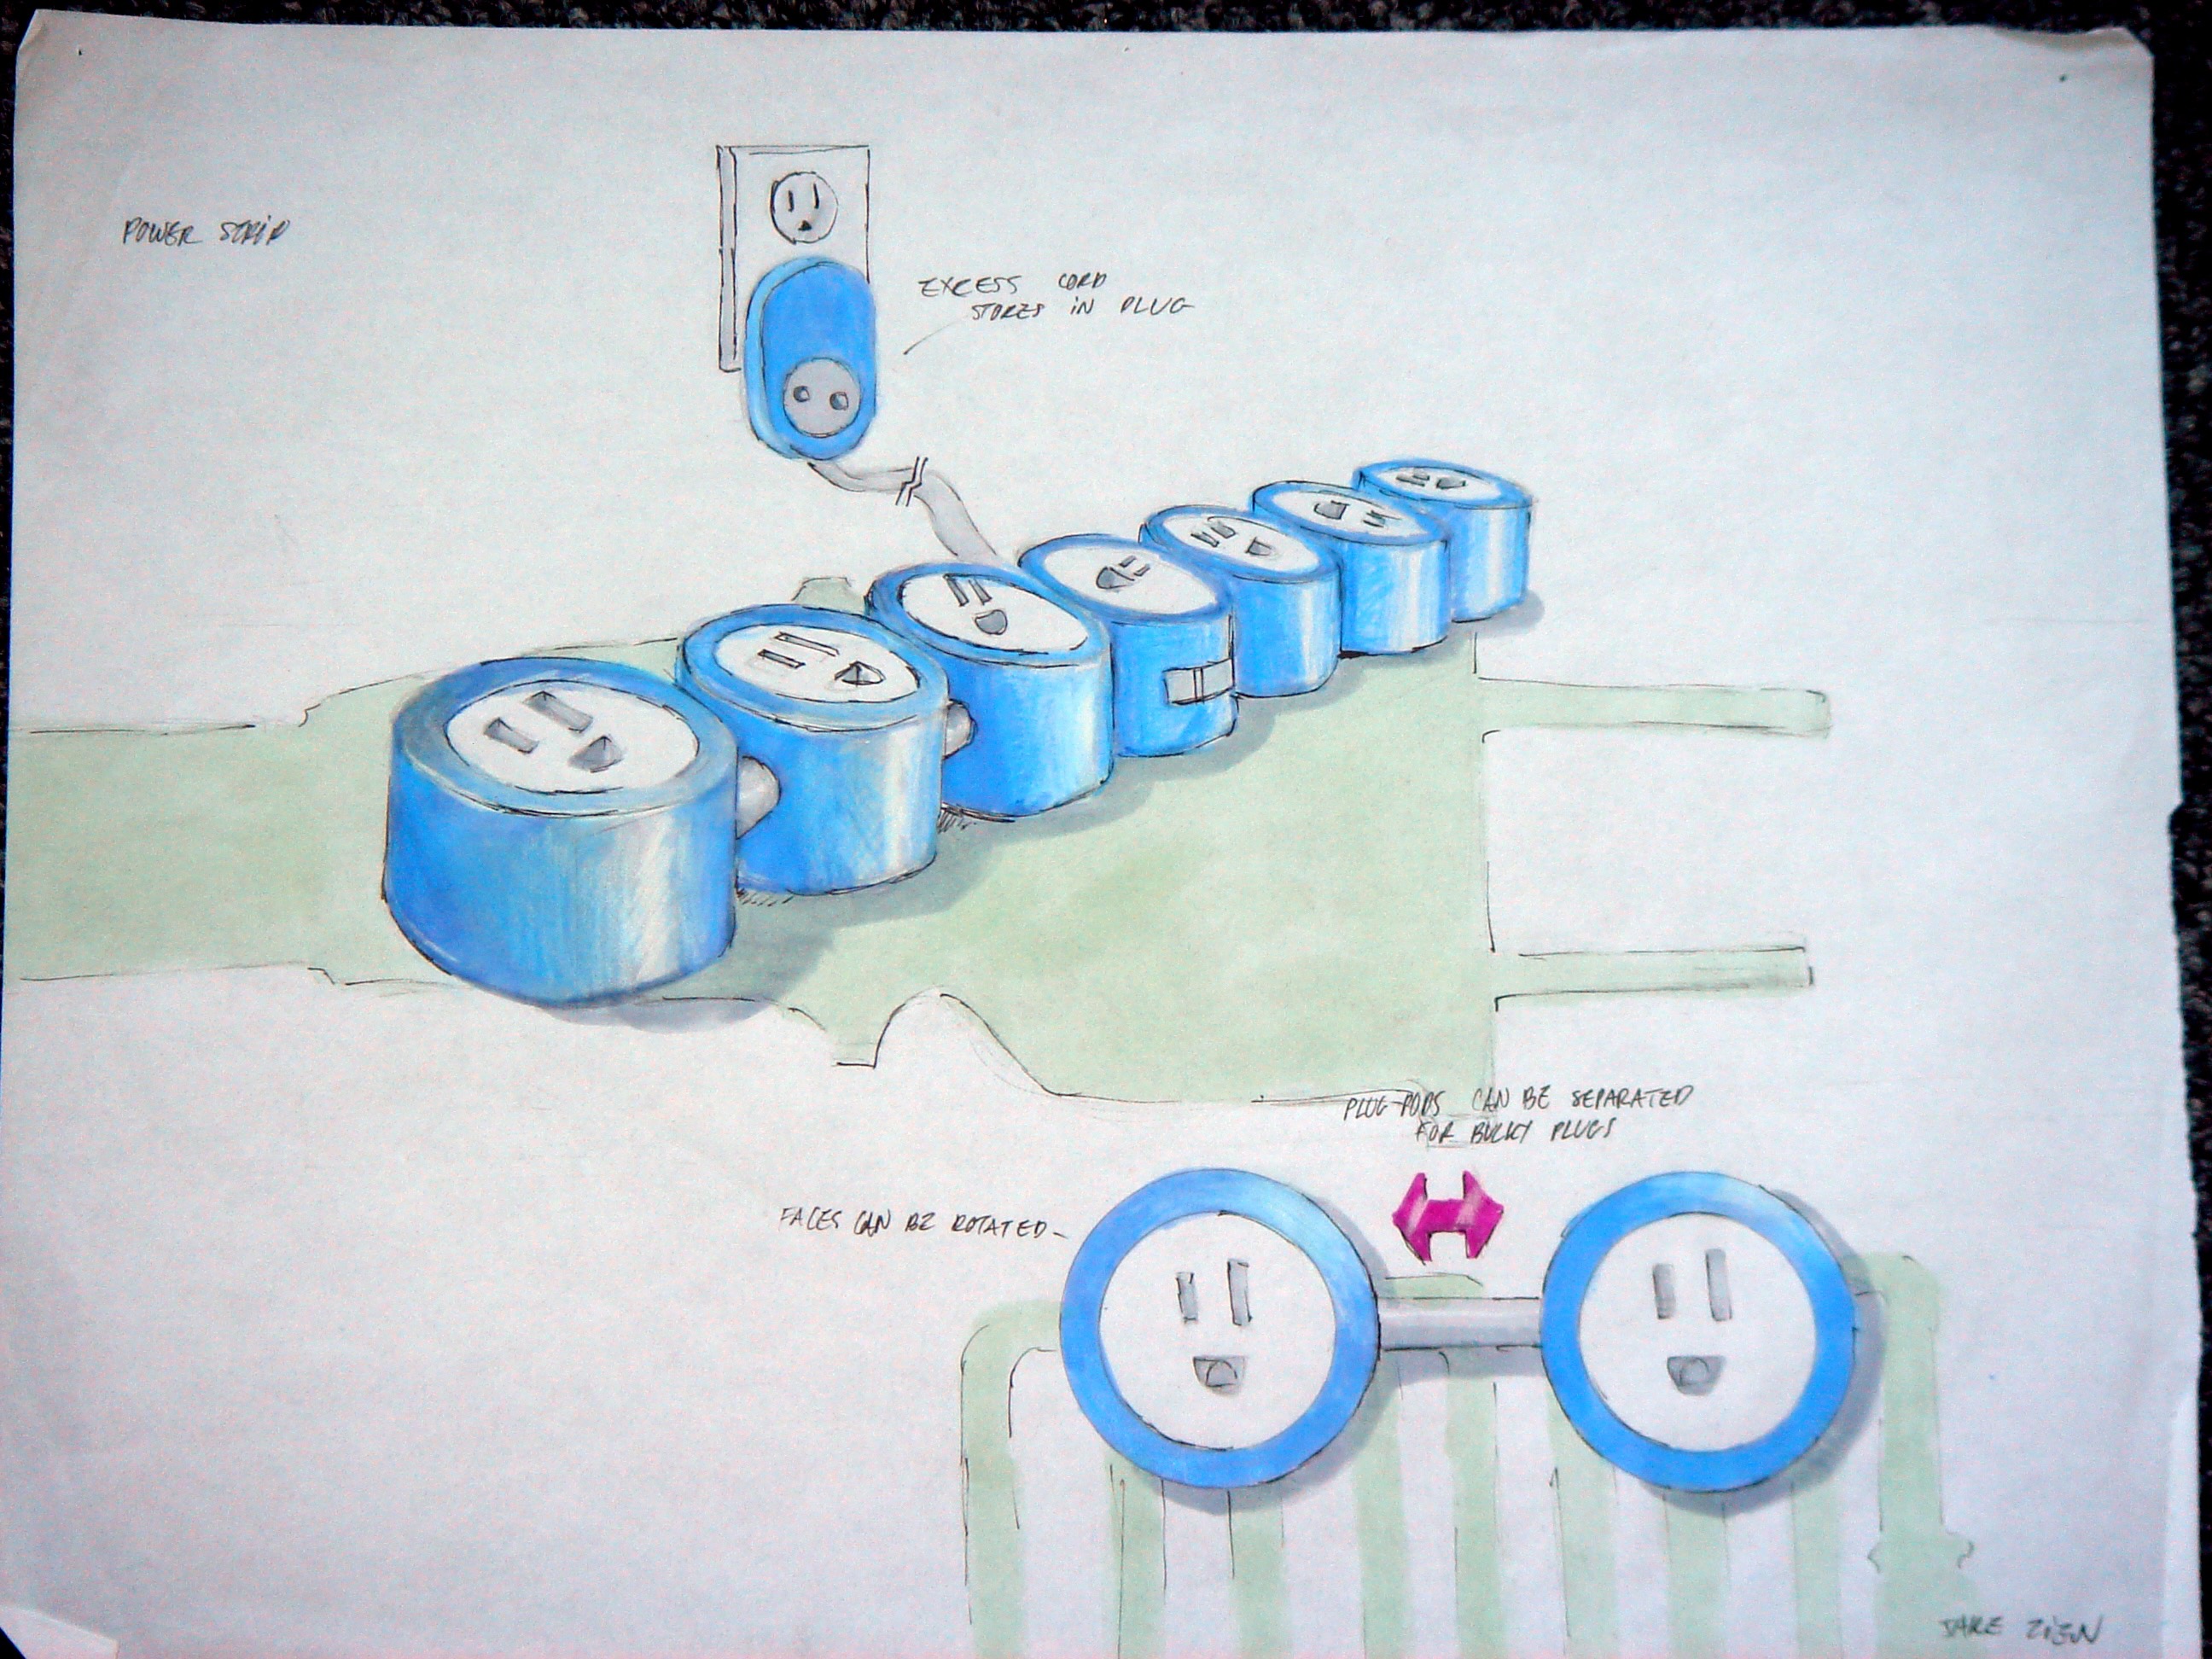 POWER STRIP
EXCESS CORD
STORES IN PLUG
PLUG-PODS CAN BE SEPARATED
FOR BULKY PLUGS
FACES CAN BE ROTATED
JAKE ZIEN